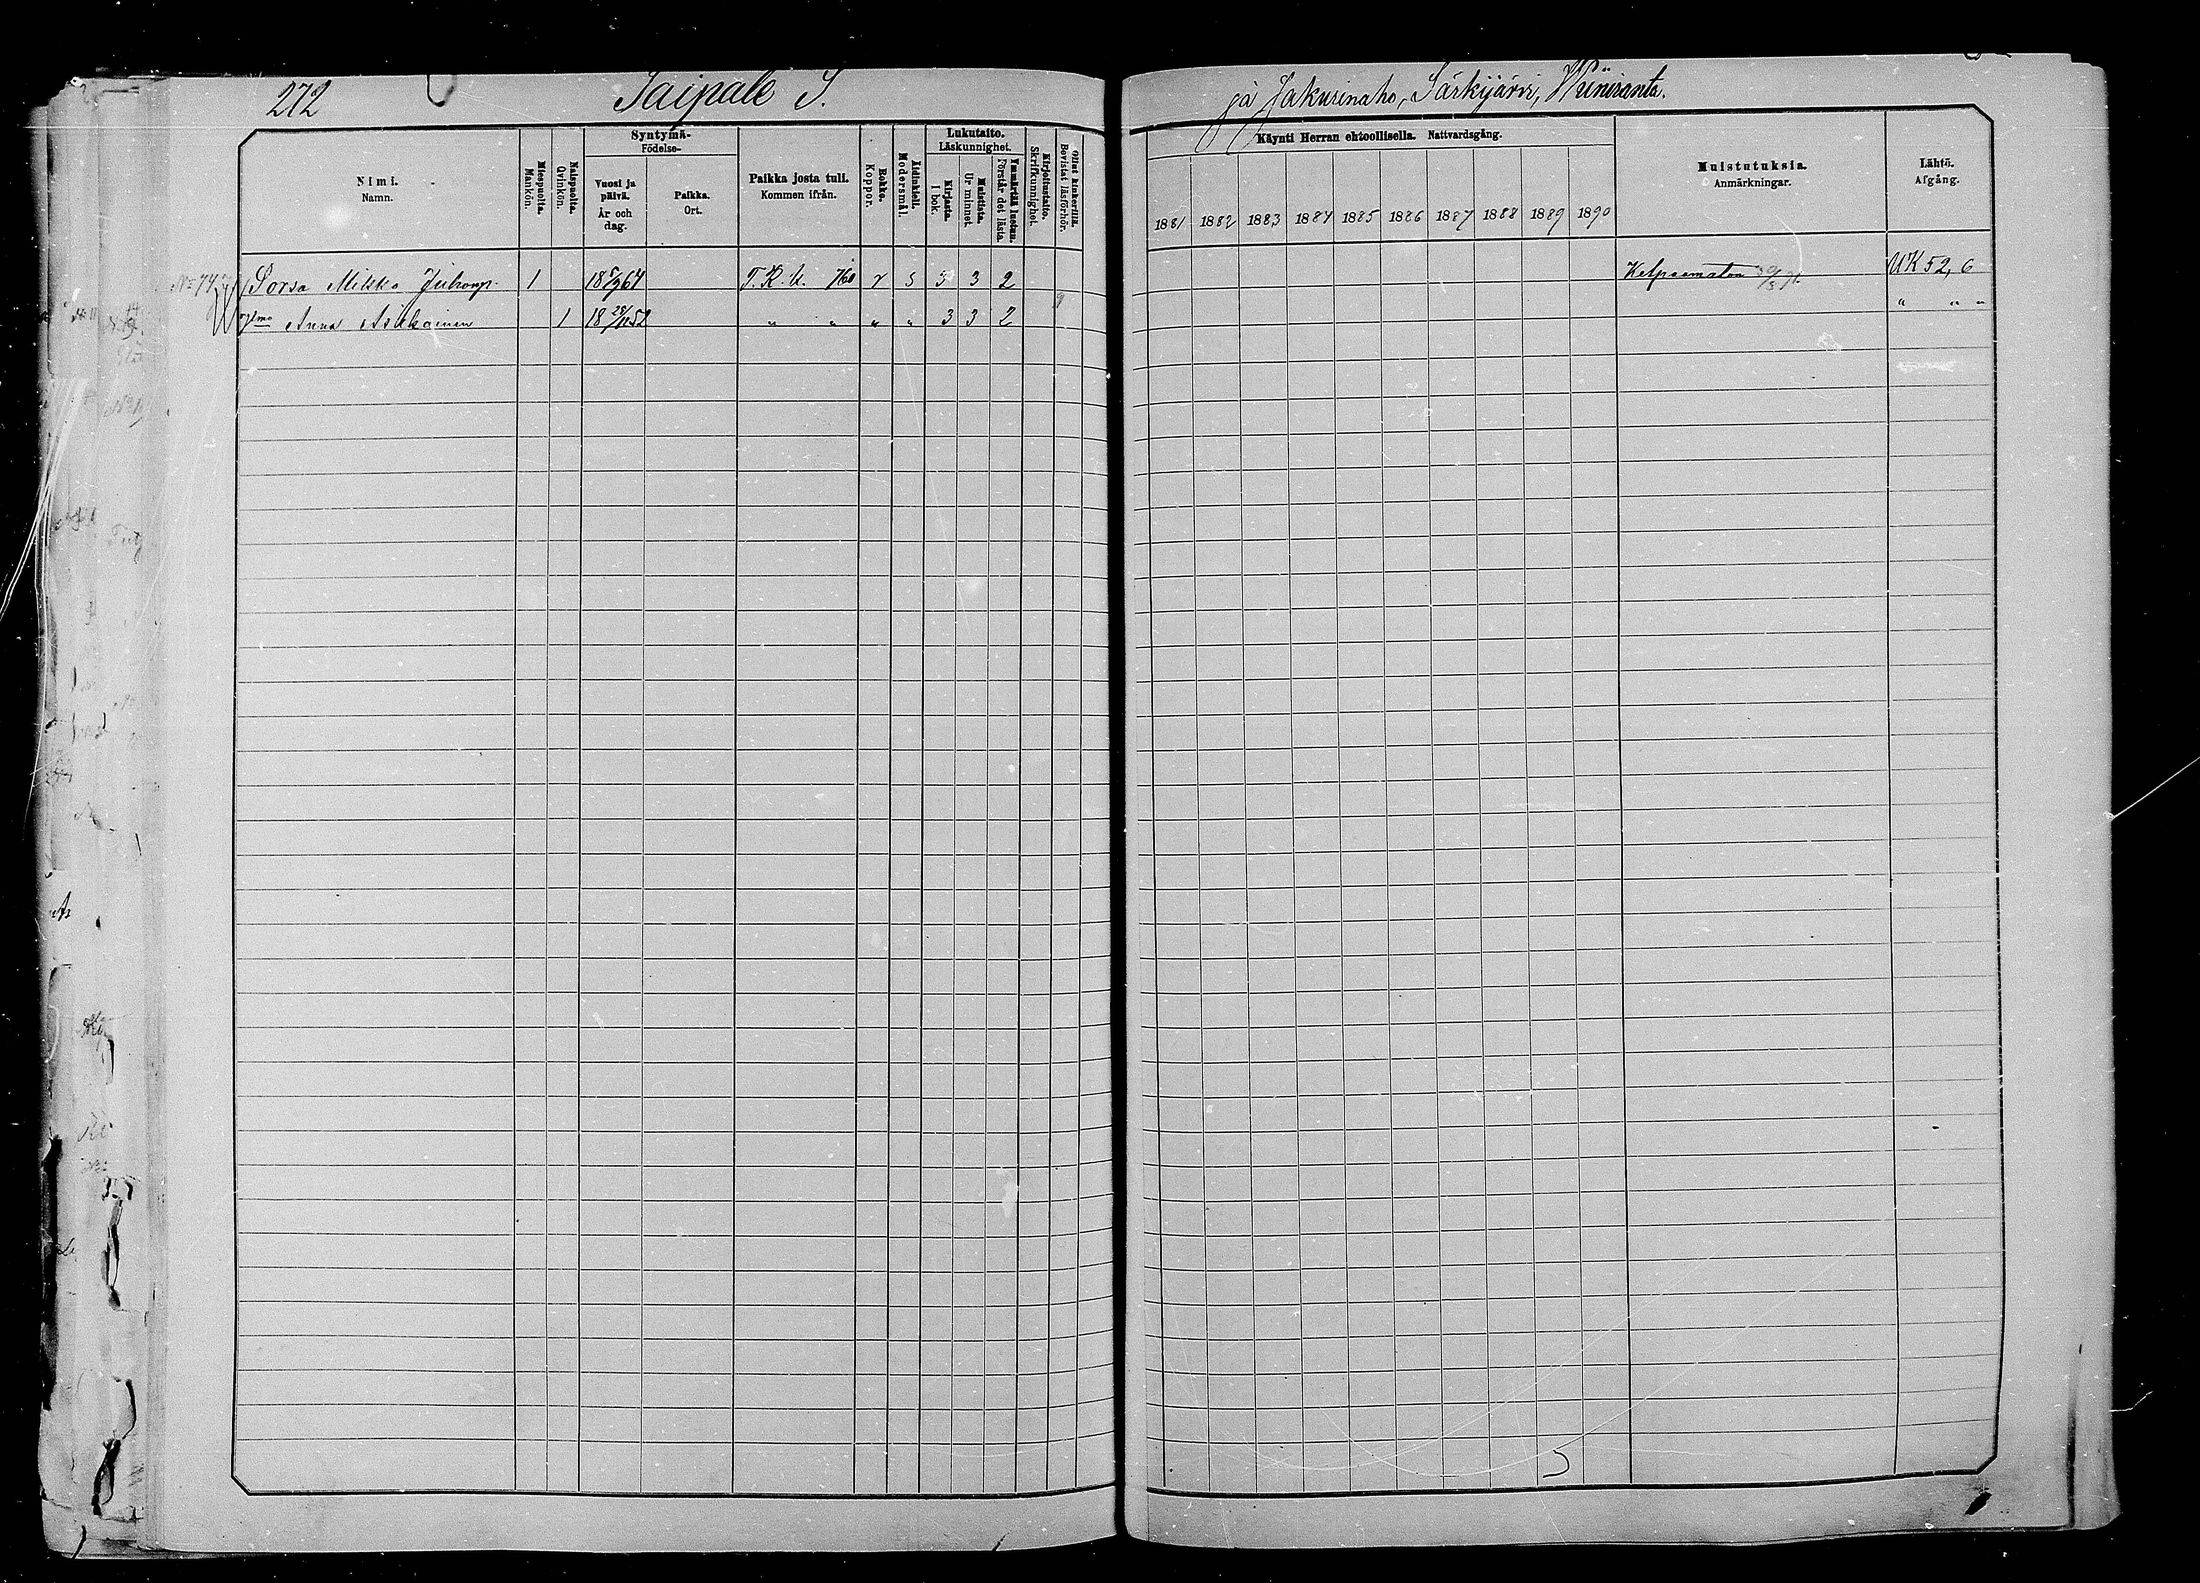 272 Taipale S.
ja Jakurinaho, Särkijärvi, Wiiniranta.
Nimi.
Namn.
Miespuolta.
Mankön.
Naispuolta.
Qvinkön.
Syntymä-
Födelse-
Vuosi ja päivä.
År och dag.
Paikka.
Ort.
Paikka josta tuli.
Kommen ifrån.
Rokko.
Koppor.
Äidinkieli.
Modersmål.
Lukutaito.
Läskunnighet.
Kirjasta.
I bok.
Muistista.
Ur minnet.
Ymmärtää luetun.
Förstår det lästa.
Kirjoitustaito.
Skrifkunnighet.
Ollut kinkerillä.
Bevistat läsförhör.
Käynti Herran ehtoollisella. Nattvardsgång.
1881 1882 1883 1884 1885 1886 1887 1888 1889 1890
Muistutuksia.
Anmärkningar.
Lähtö.
Afgång.
Sorsa Mikko Juhonp. 1 18 5/9 64 T.K.k. 760 r s 3 3 2 Kelpaamaton UK 52, 6
Anna Asikainen 1 18 52 " " " " 3 3 2 " " "